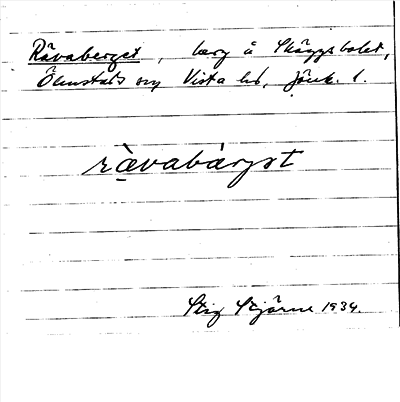 Rävaberget, berg å Skäggebolet,
Ölmstads sn, Vista hd, Jönk. l.
rävabärjet
Stig Stjärne 1934.